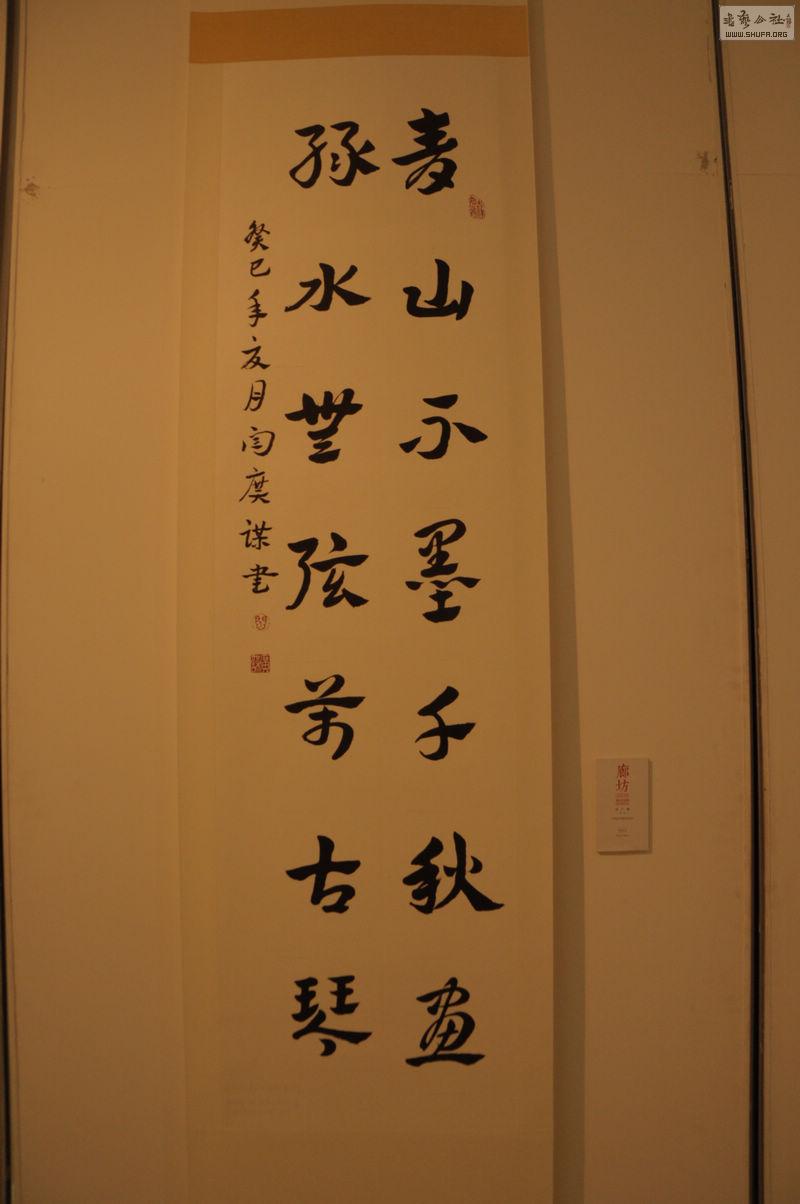 青山不墨千秋畫
綠水無弦萬古琴
癸巳年夏月闫谋書
廊坊
書藝公社
WWW.SHUFA.ORG